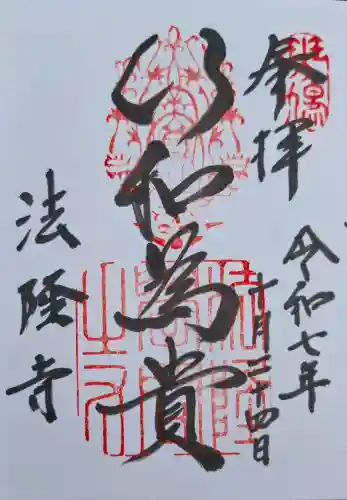 奉拝
令和七年
十月二十四日
以和為貴
法隆寺